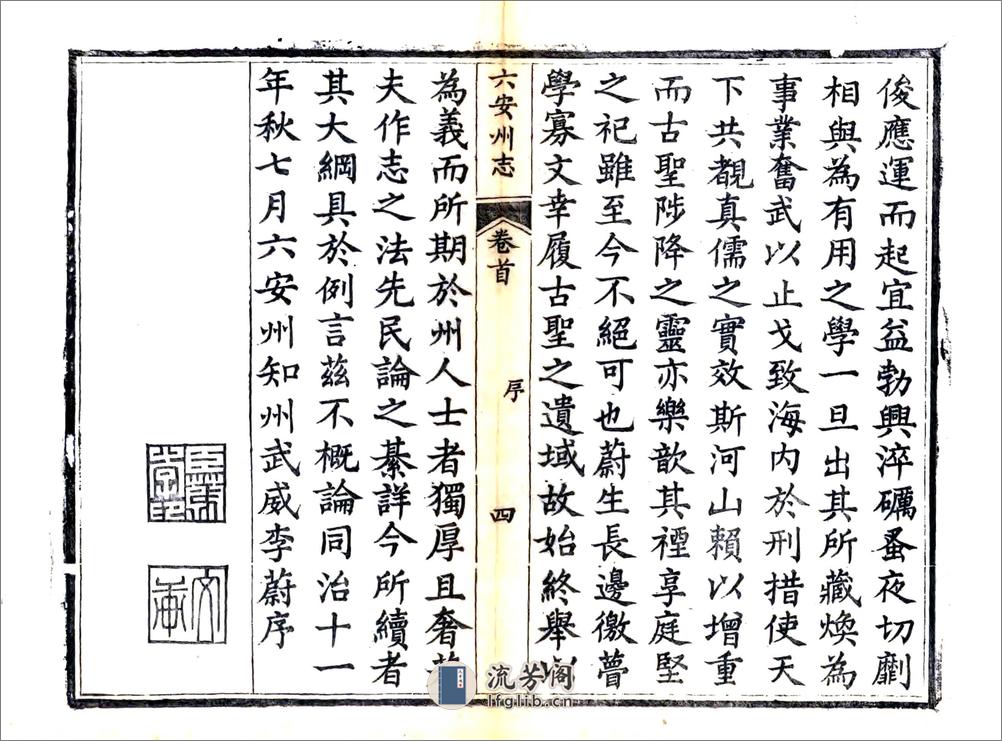 俊應運而起宜益勃興淬礪蚤夜切劘
相與為有用之學一旦出其所藏煥為
事業奮武以止戈致海內於刑措使天
下共覩真儒之實效斯河山賴以增重
而古聖陟降之靈亦樂歆其禋享庭堅
之祀雖至今不絕可也蔚生長邊徼瞢
學寡文幸履古聖之遺域故始終舉以
六安州志
卷首
序
四
為義而所期於州人士者獨厚且奢若
夫作志之法先民論之綦詳今所續者
其大綱具於例言茲不概論同治十一
年秋七月六安州知州武威李蔚序
流芳阁
lfglib.cn